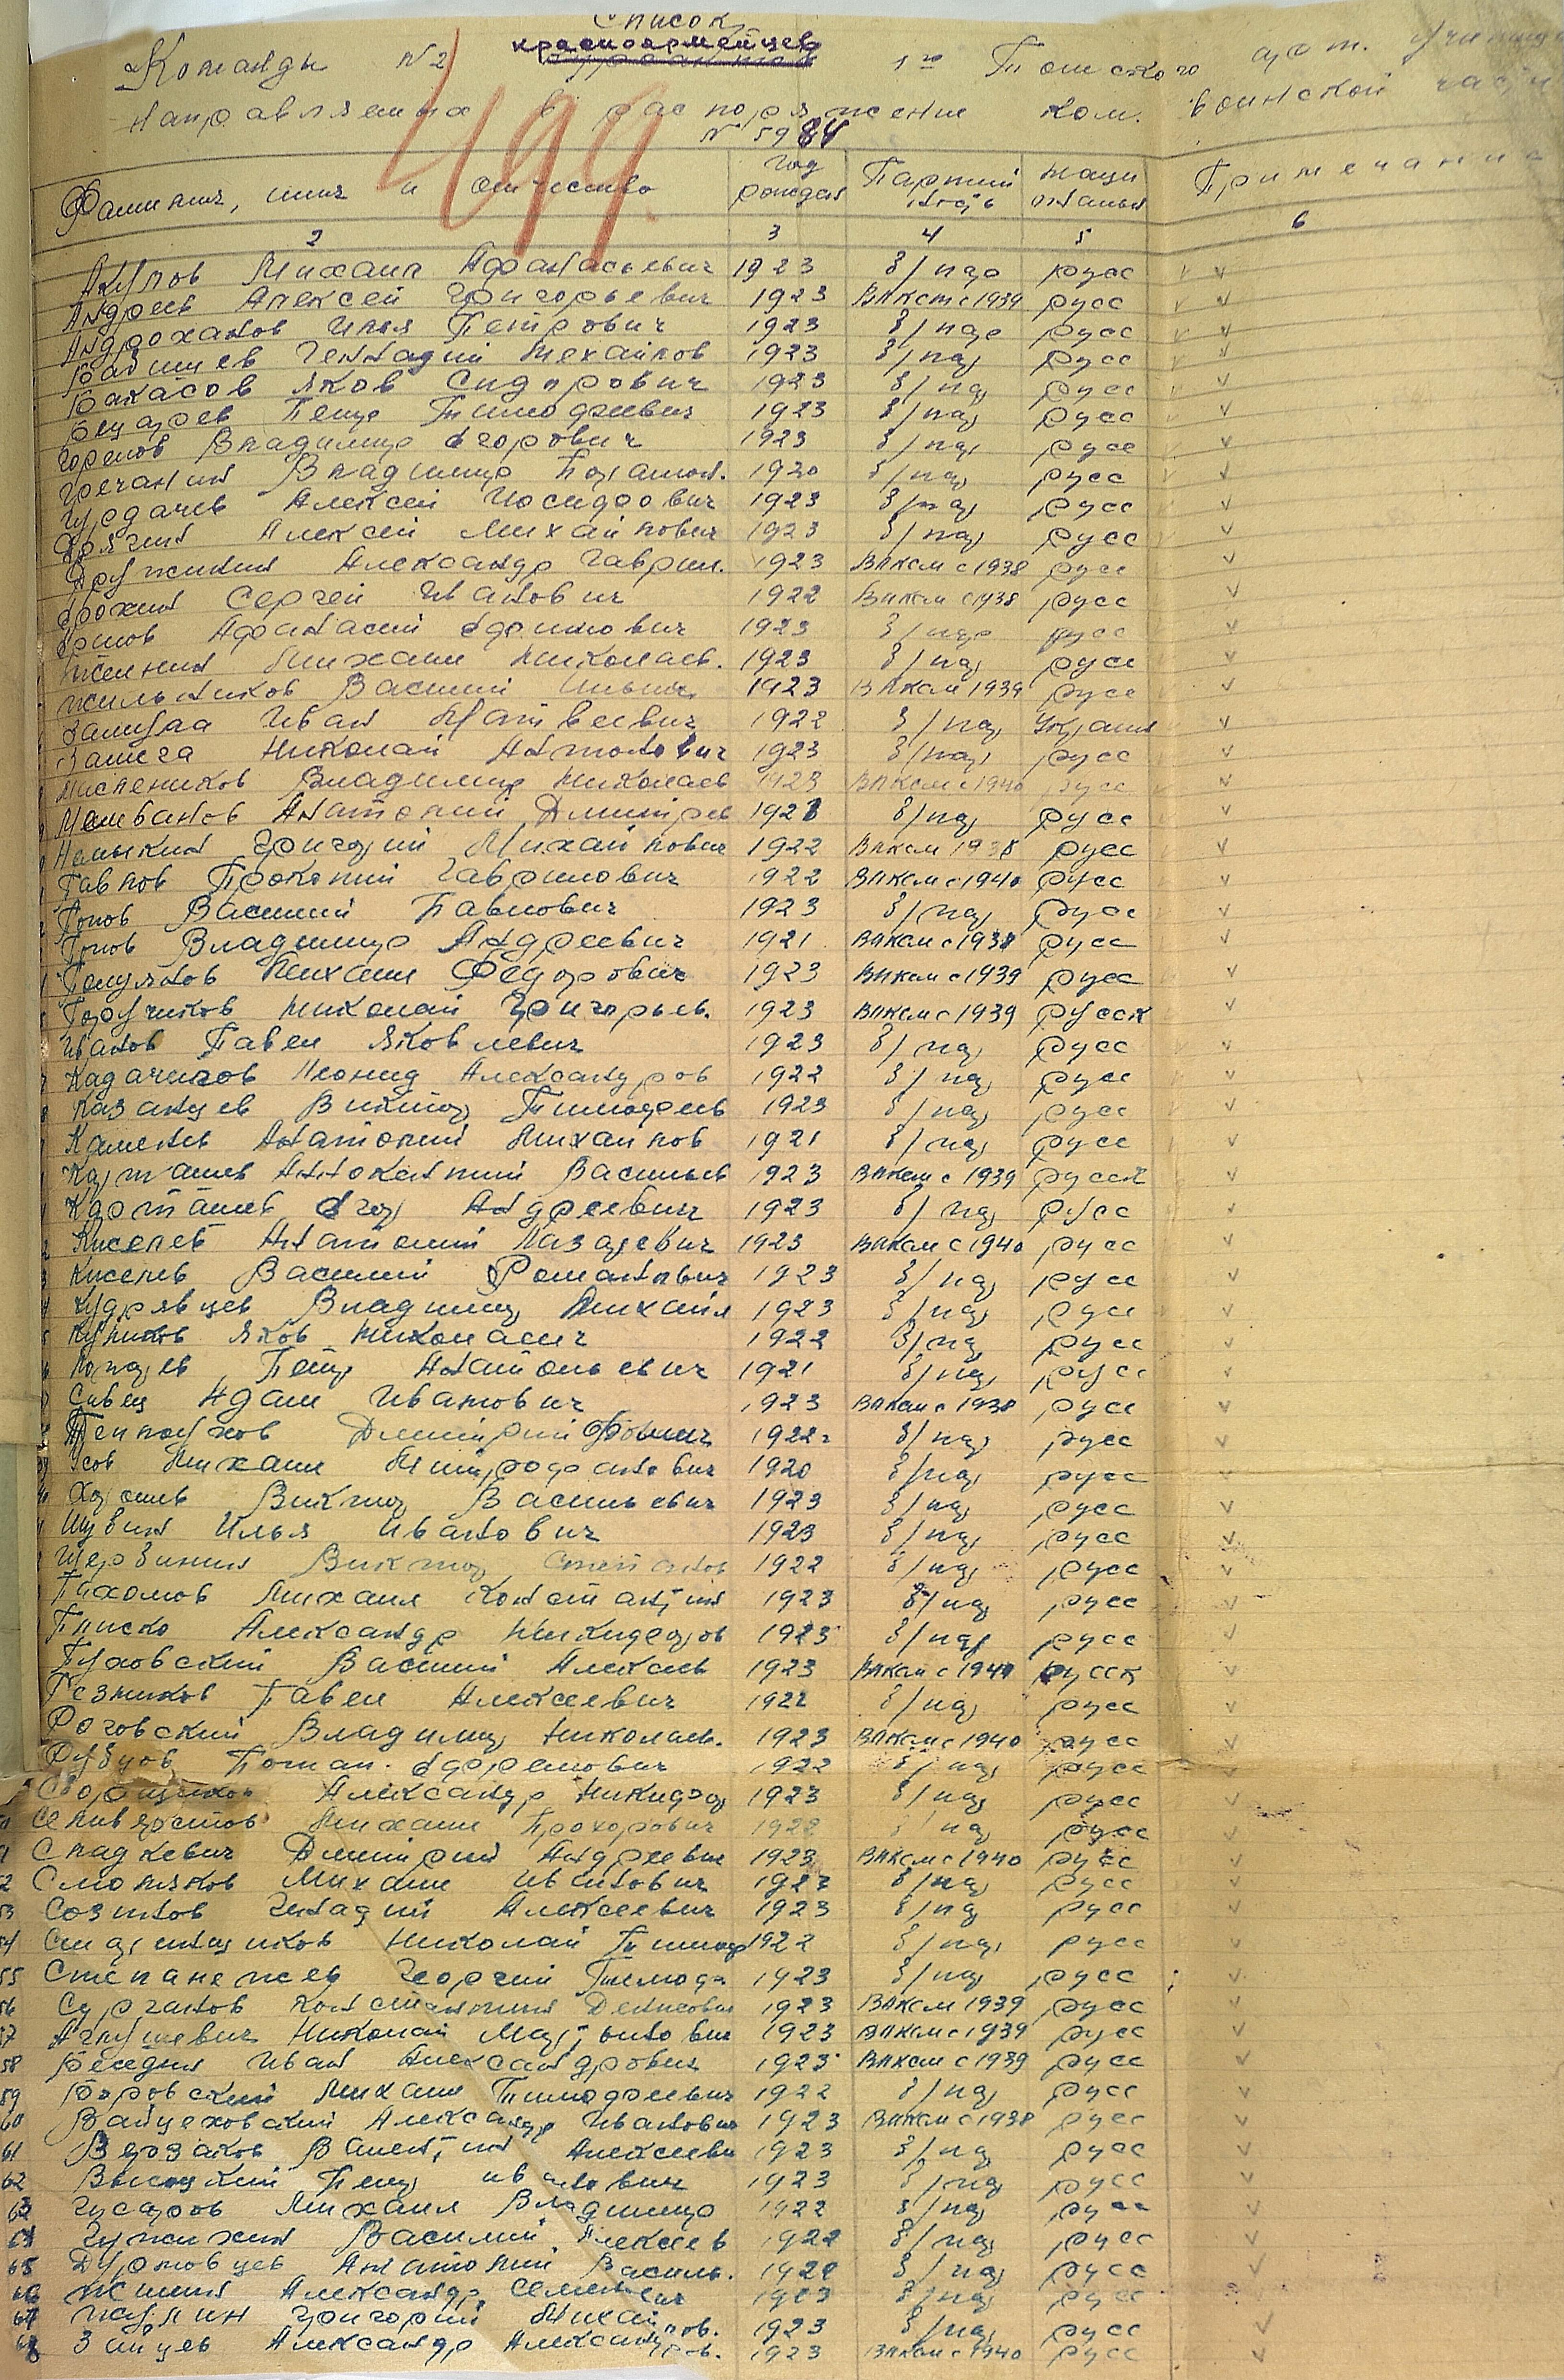 Список
красноармейцев
Команды №2 1го Томского арт. училища
направляемых в распоряжение ком. воинской части
№ 5984
499
Фамилия, имя и отчество год рожден Партий ность наци ональн Примечание
2 3 4 5 6
Акулов Михаил Афанасьевич 1923 б/пар русс
Андреев Алексей Григорьевич 1923 ВЛКСМ с 1939 русс
Андроханов Илья Петрович 1923 б/пар русс
Геннадий Михайлов 1923 б/пар русс
Бакасов Яков Сидорович 1923 б/пар русс
Петр Тимофеевич 1923 б/пар русс
Горелов Владимир Егорович 1923 б/пар русс
Гречанин Владимир 1920 б/пар русс
Алексей 1923 б/пар русс
Алексей Михайлович 1923 б/пар русс
Дружинин Александр Гаврил. 1923 ВЛКСМ с 1938 русс
Ерохин Сергей Иванович 1922 ВЛКСМ с 1938 русс
Афанасий Ефимович 1923 б/пар русс
Михаил Николаев. 1923 б/пар русс
Жильников Василий Ильич 1923 ВЛКСМ 1939 русс
Иван Матвеевич 1922 б/пар Украин
Николай Антонович 1923 б/пар русс
Маслеников Владимир Николаев 1923 ВЛКСМ с 1940 русс
Анатолий Дмитрев 1923 б/пар русс
Григорий Михайлович 1922 ВЛКСМ 1938 русс
Павлов Прокопий Гаврилович 1922 ВЛКСМ с 1940 русс
Попов Василий Павлович 1923 б/пар русс
Попов Владимир Андреевич 1921 ВЛКСМ с 1938 русс
Михаил Федорович 1923 ВЛКСМ с 1939 русс
Поручиков Николай Григорьев. 1923 ВЛКСМ с 1939 русск
Иванов Павел Яковлевич 1923 б/пар русс
Кадачигов Леонид Александров 1922 б/пар русс
Казанцев Виктор Тимофеев 1923 б/пар русс
Каменев Анатолий Михайлов 1921 б/пар русс
Карташев Иннокентий Васильев 1923 ВЛКСМ с 1939 русск
Карташев Егор Андреевич 1923 б/пар русс
Киселев Анатолий Лазаревич 1923 ВЛКСМ с 1940 русс
Киселев Василий Романович 1923 б/пар русс
Кудрявцев Владимир Михайл 1923 б/пар русс
Куликов Яков Николаевич 1922 б/пар русс
Петр Анатольевич 1921 б/пар русс
Сивец Адам Иванович 1923 ВЛКСМ с 1938 русс
Теплоухов Дмитрий Фомич 1922 б/пар русс
Усов Михаил Митрофанович 1920 б/пар русс
40 Хорошев Виктор Васильевич 1923 б/пар русс
Шубин Илья Иванович 1923 б/пар русс
Щербинин Виктор Степанов 1922 б/пар русс
Пахомов Михаил Константин 1923 б/пар русс
Плиско Александр Никифоров 1923 б/пар русс
Пуховский Василий Алексеев 1923 ВЛКСМ с 1940 русск
Резников Павел Алексеевич 1922 б/пар русс
Роговский Владимир Николаев. 1923 ВЛКСМ с 1940 русс
Рубцов Потап. Ефремович 1922 б/пар русс
Александр Никифор 1923 б/пар русс
Селиверстов Михаил Прохорович 1922 б/пар русс
Сладкевич Дмитрий Андреевич 1923 ВЛКСМ с 1940 русс
52 Смоляков Михаил Иванович 1922 б/пар русс
53 Созинов Генадий Алексеевич 1923 б/пар русс
54 Николай Тимоф 1922 б/пар русс
55 Георгий Тимофе 1923 б/пар русс
56 Сурганов Константин Денисович 1923 ВЛКСМ 1939 русс
57 Николай Мартынович 1923 ВЛКСМ с 1939 русс
58 Беседин Иван Александрович 1923 ВЛКСМ с 1939 русс
59 Боровский Михаил Тимофеевич 1922 б/пар русс
60 Вайцеховский Александр Иванович 1923 ВЛКСМ с 1938 русс
61 Валентин Алексеевич 1923 б/пар русс
62 Высоцкий Петр Иванович 1923 б/пар русс
63 Гусаров Михаил Владимир 1922 б/пар русс
64 Гужихин Василий Алексеев 1922 б/пар русс
65 Анатолий Василь. 1922 б/пар русс
66 Александр Семенович 1923 б/пар русс
67 Григорий Михайлов. 1923 б/пар русс
68 Зайцев Александр Александров. 1923 ВЛКСМ с 1940 русс